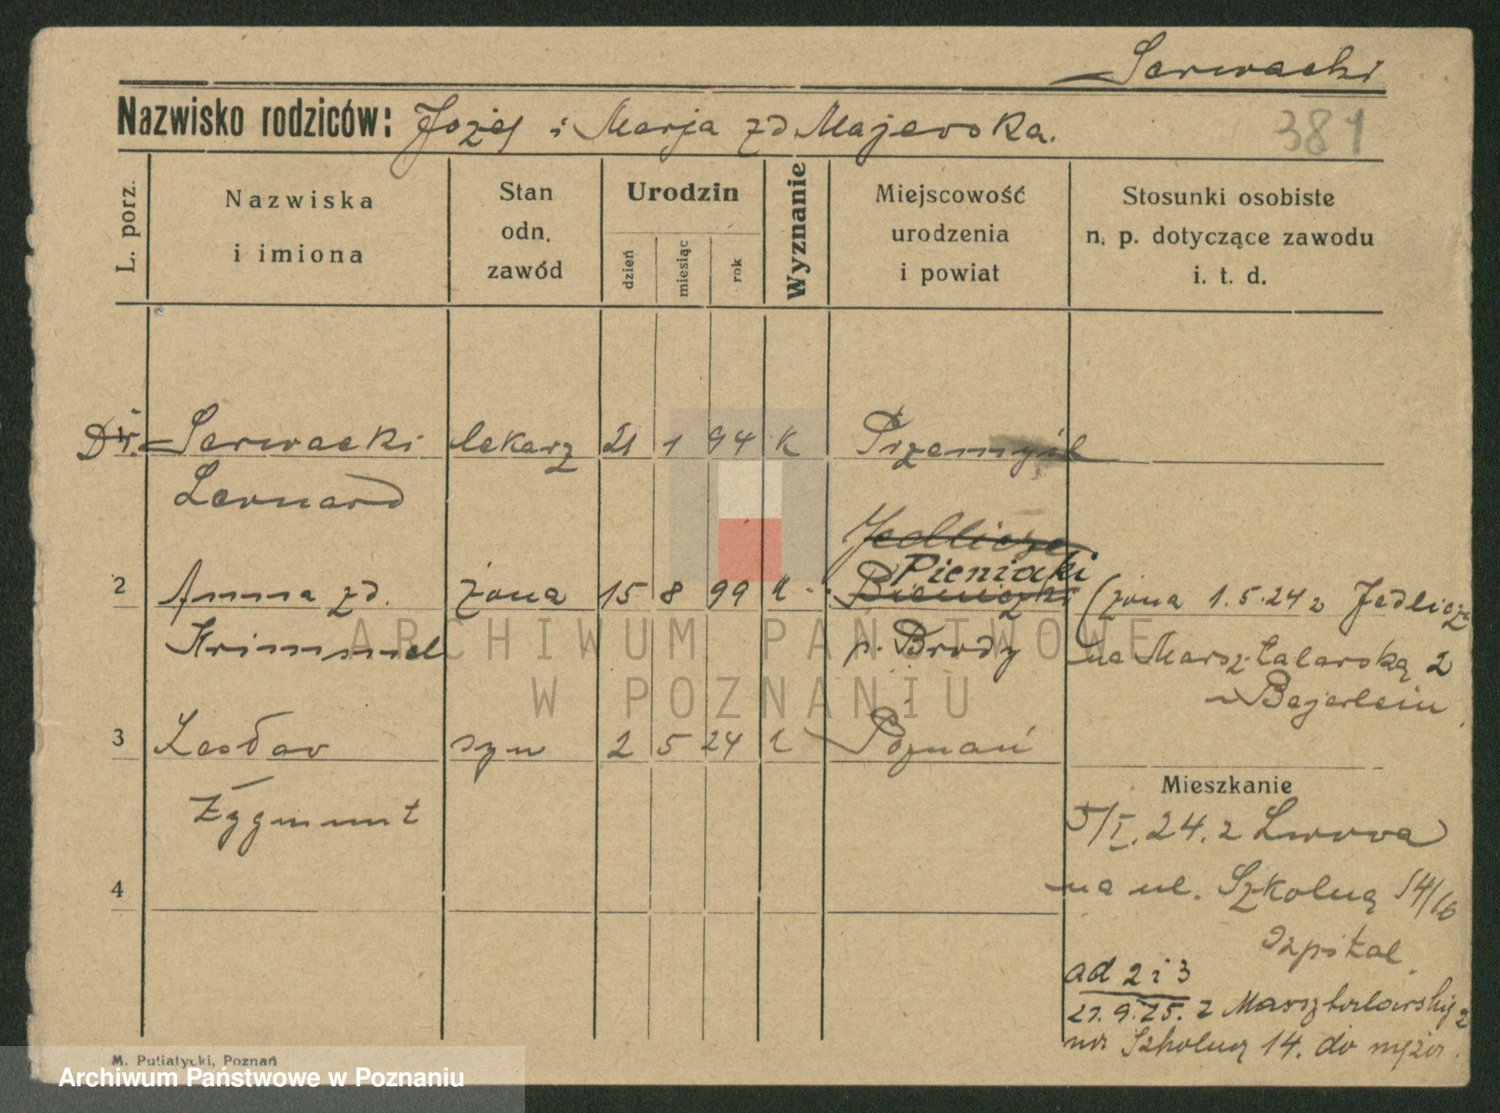 Serwacki
Nazwisko rodziców: Józef i Marja zd Majewska.
381
L. porz.
Nazwiska
i imiona
Stan
odn.
zawód
Urodzin
dzień
miesiąc
rok
Wyznanie
Miejscowość
urodzenia
i powiat
Stosunki osobiste
n. p. dotyczące zawodu
i. t. d.
Dr. Serwacki lekarz 21 1 94 k Przemyśl
Bernard
Jedlicze
Pieniaki
2 Anna zd. żona 15 8 99 k Bieniczki (żona 1.5.24 z Jedlicze
Krimmel p. Brody na Marsztalarską 2
Bejerlein
3 Lesław syn 2 5 24 k Poznań
Zygmunt
Mieszkanie
5/I. 24. z Lwowa
4 na ul. Szkolną 14/16
szpital.
ad 2 i 3
21.9.25. z Marsztalarskiej 2
na Szkolną 14. do męża.
M. Putiatycki, Poznań
ARCHIWUM PAŃSTWOWE
W POZNANIU
Archiwum Państwowe w Poznaniu